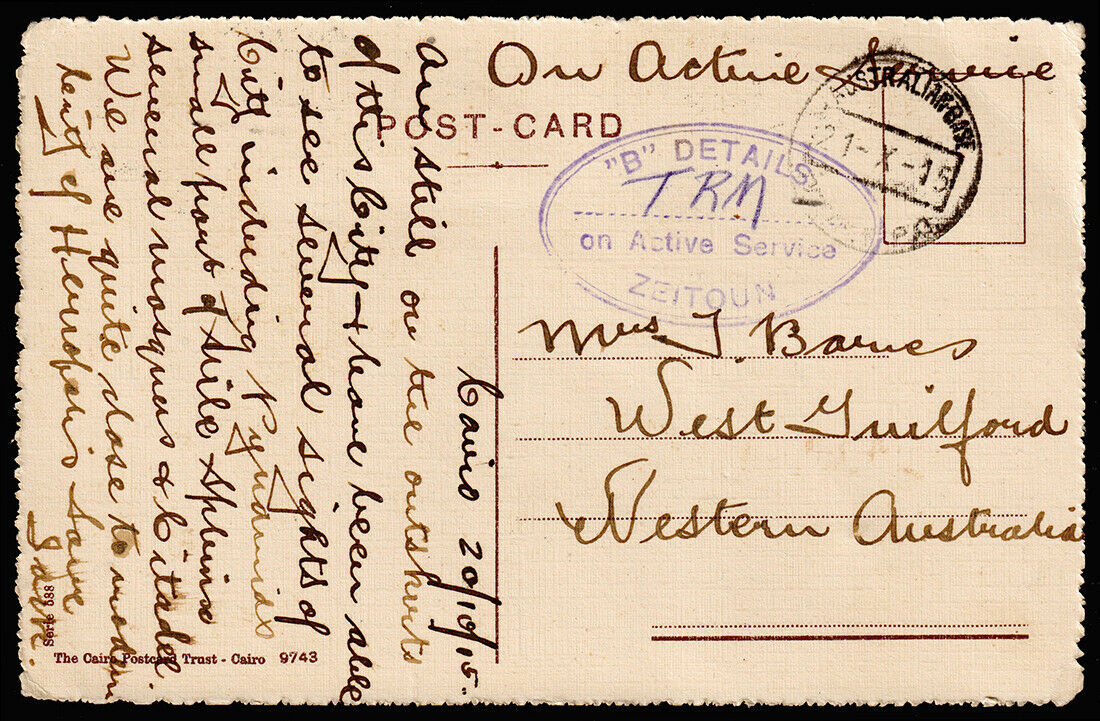 On Active Service
POST-CARD
AUSTRALIAN BASE
21-X-15
"B" DETAILS
TRM
on Active Service
ZEITOUN
Mrs J. Barnes
West Guilford
Western Australia
Cairo 20/10/15.
Am still on the outskirts
of this City & have been able
to see several sights of
City including Pyramids
small part of Nile Sphinx
several mosques & Citadel.
We are quite close to modern
City of Heliopolis Love
Jack.
Serie 588
The Cairo Postcard Trust - Cairo 9743